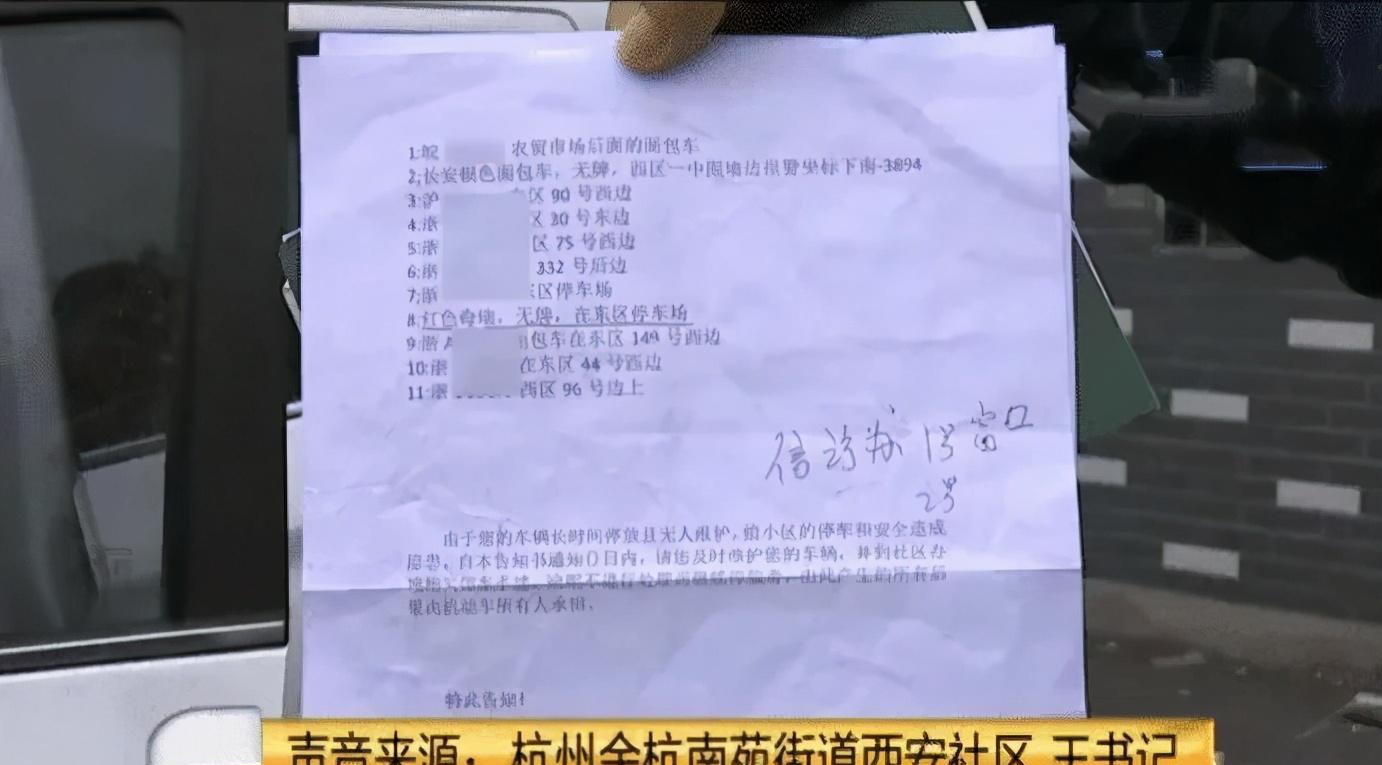 1:皖 农贸市场后面的面包车
2:长安银色面包车，无牌，西区一中围墙边 坐标下南-3894
3:浙 区 90 号西边
4:浙 区 20 号东边
5:浙 区 75 号西边
6:浙 332 号后边
7:浙 区停车场
8:红色奇瑞，无牌，在东区停车场
9:浙A 包车在东区 149 号西边
10:浙 在东区 44 号西边
11:浙 西区 96 号边上
信访办 1号窗口
2号
由于您的车辆长时间停放且无人维护，给小区的停车和安全造成
隐患。自本告知书通知 日内，请您及时维护您的车辆，并到社区
由此产生的所有
车所有人承担。
特此告知!
声音来源：杭州余杭南苑街道西安社区 王书记